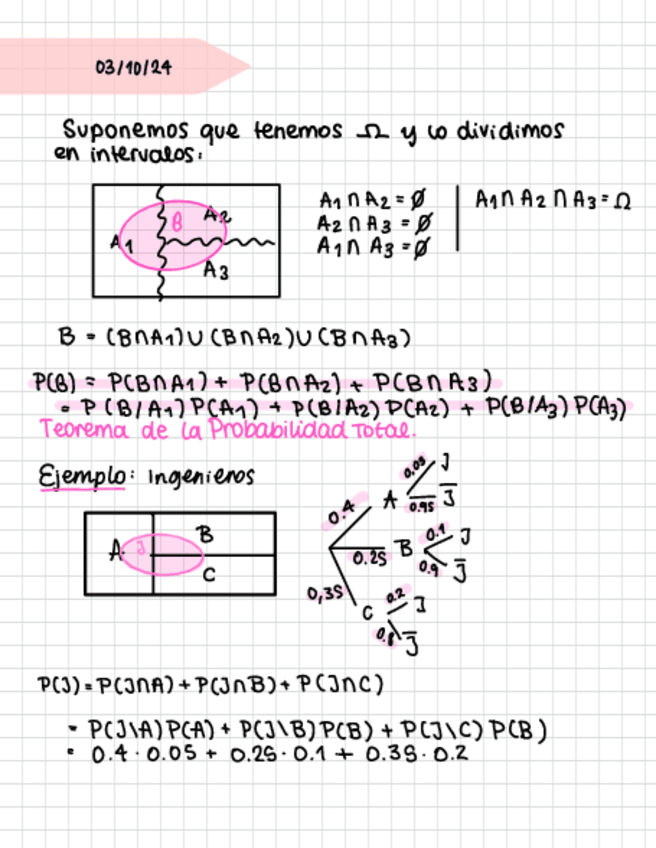 03/10/24
Suponemos que tenemos Ω y lo dividimos
en intervalos:
A1 B A2
A3
A1 ∩ A2 = ∅
A2 ∩ A3 = ∅
A1 ∩ A3 = ∅
A1 ∩ A2 ∩ A3 = Ω
B = (B∩A1) ∪ (B∩A2) ∪ (B∩A3)
P(B) = P(B∩A1) + P(B∩A2) + P(B∩A3)
= P(B/A1) P(A1) + P(B/A2) P(A2) + P(B/A3) P(A3)
Teorema de la Probabilidad Total.
Ejemplo: Ingenieros
A J B
C
0.4 A 0.05 J
0.95 J̅
0.25 B 0.1 J
0.9 J̅
0,35 C 0.2 J
0.8 J̅
P(J) = P(J∩A) + P(J∩B) + P(J∩C)
= P(J\A) P(A) + P(J\B) P(B) + P(J\C) P(B)
= 0.4 · 0.05 + 0.25 · 0.1 + 0.35 · 0.2